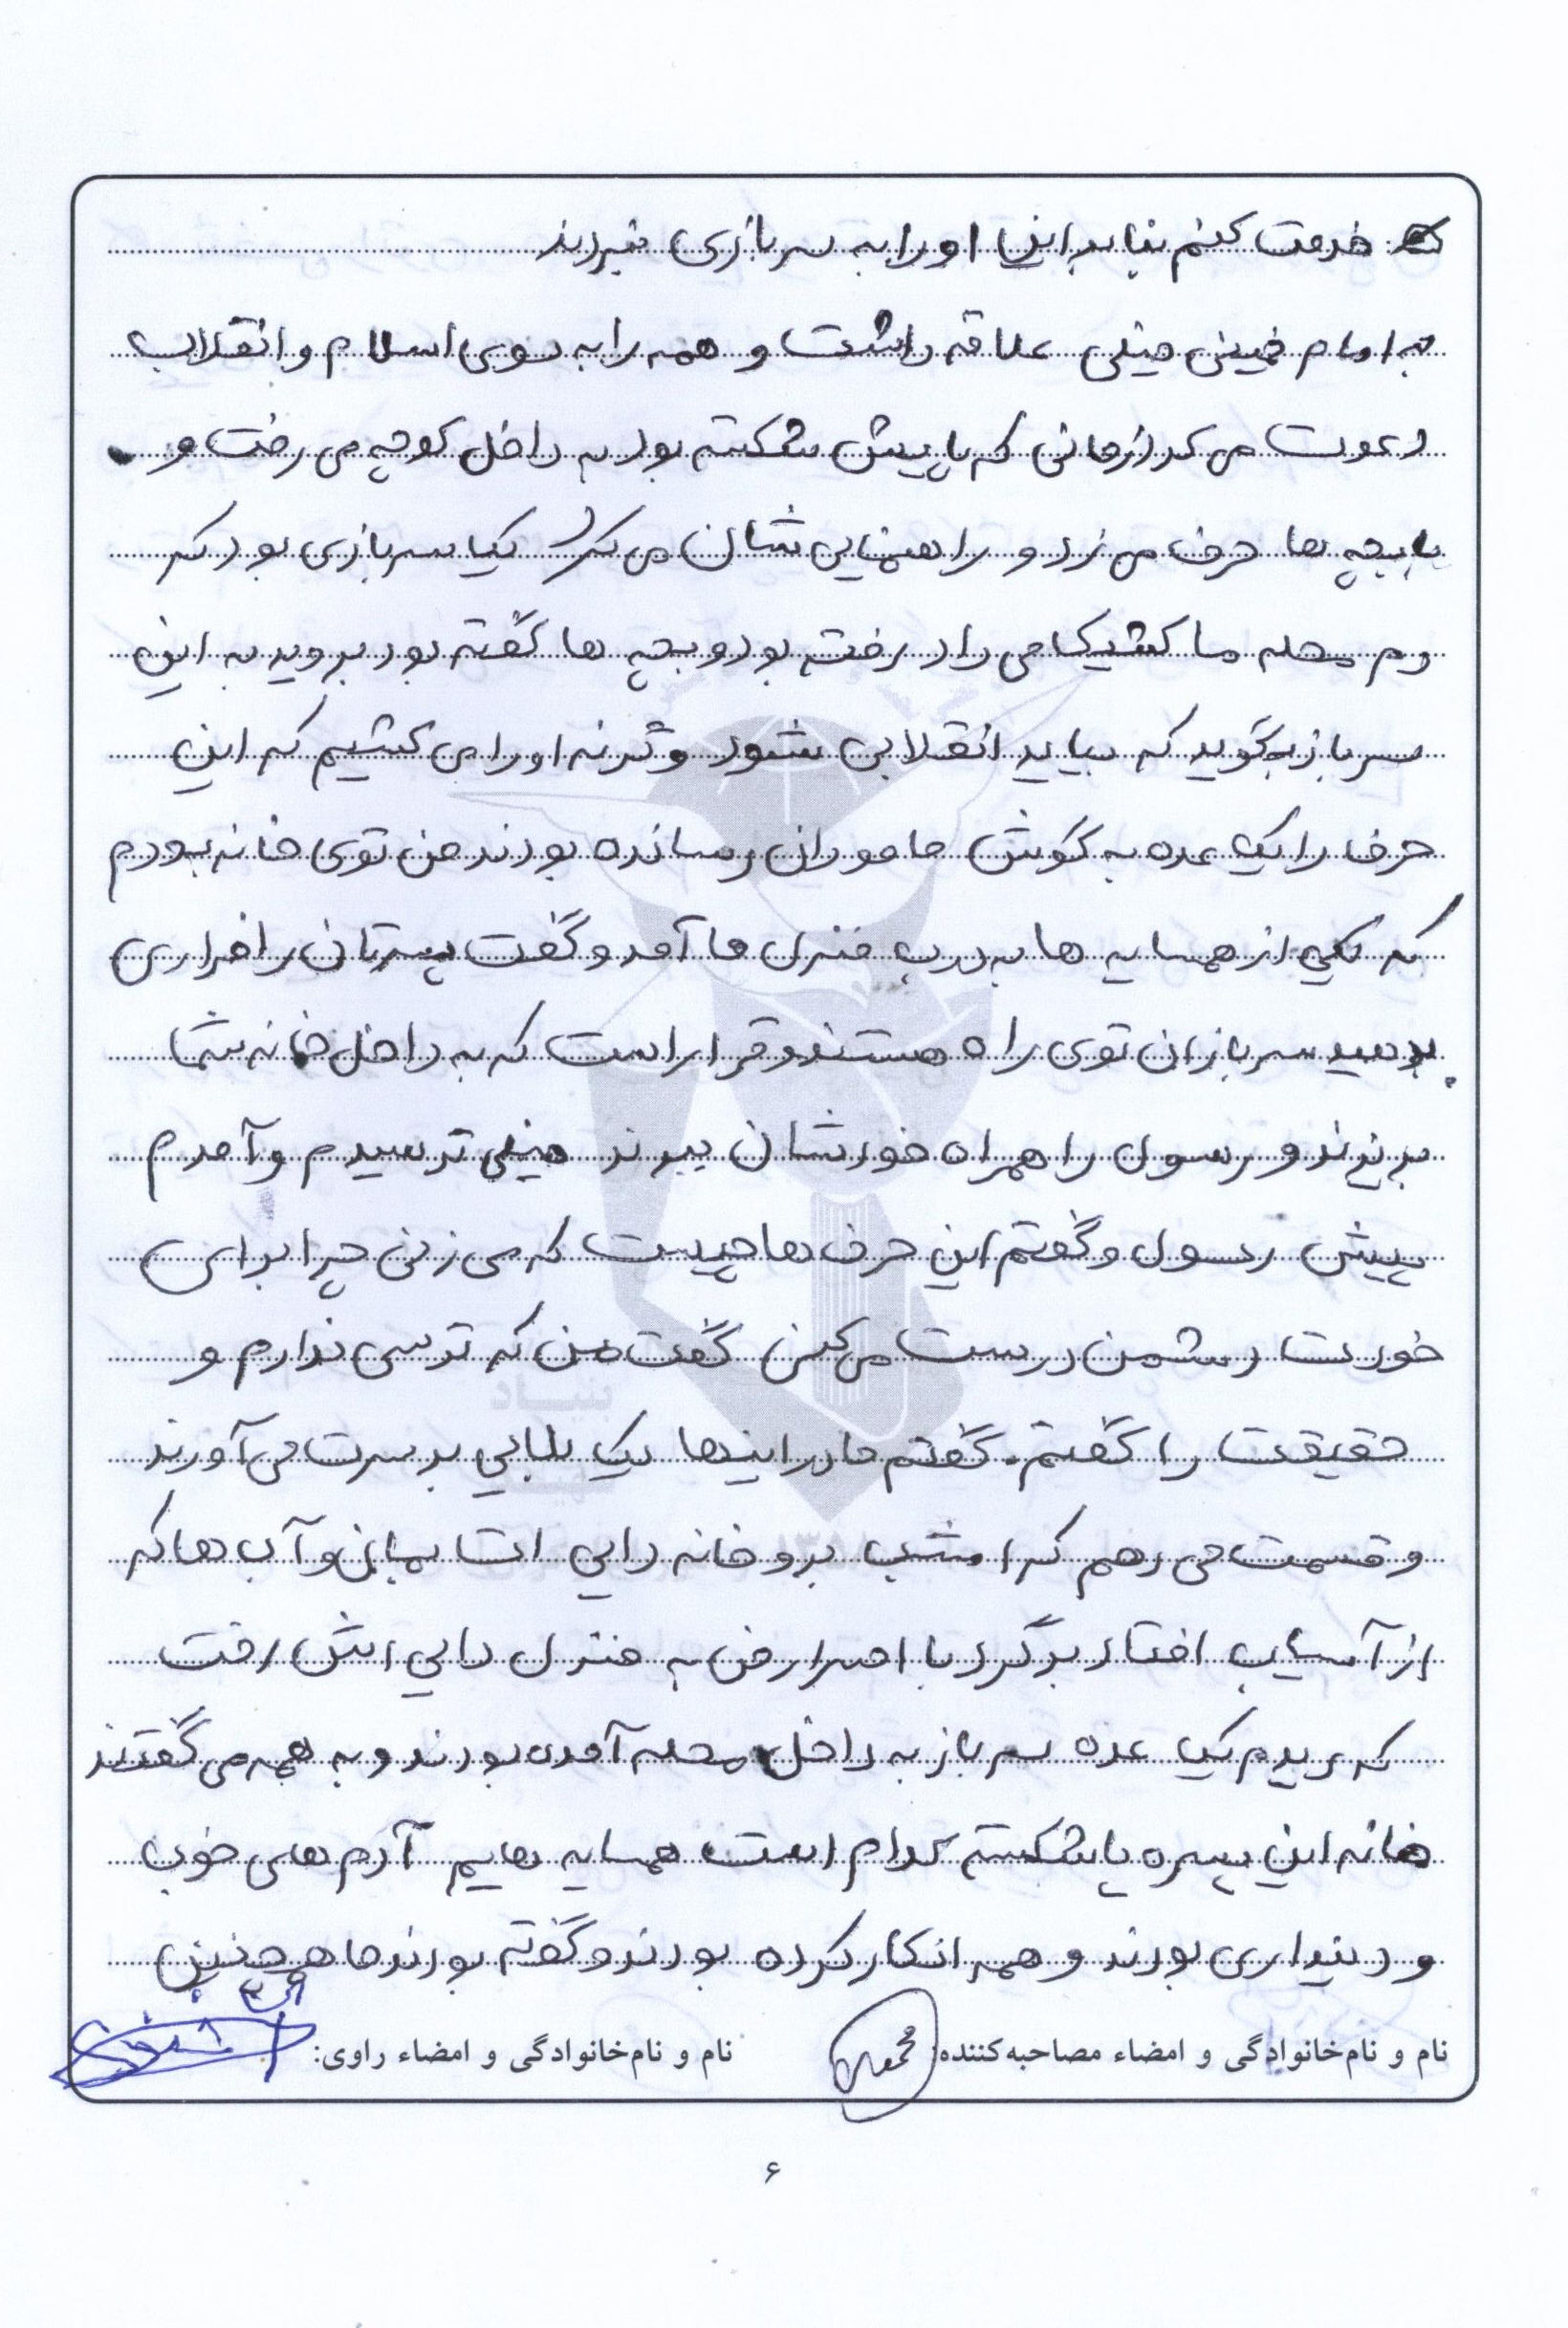 خدمت کنم بنابراین او را به سربازی نبردند
به امام خمینی خیلی علاقه داشت و همه را به سوی اسلام و انقلاب
دعوت می کرد از زمانی که پایش شکسته بود به داخل کوچه می رفت و
با بچه ها حرف می زد و راهنمایی شان می کرد یک سربازی بود که
دم محله ما کشیک می داد رفته بود و بچه ها گفته بود بروید به این
سرباز بگوید که بیاید انقلابی شود وگرنه او را می کشیم که این
حرف را یک عده به گوش ماموران رسانده بودند من توی خانه بودم
که یکی از همسایه ها به درب منزل ما آمد و گفت پسرتان را فراری
بدهید سربازان توی راه هستند و قرار است که به داخل خانه شما
بریزند و رسول را همراه خودشان ببرند خیلی ترسیدم و آمدم
پیش رسول و گفتم این حرف ها چیست که می زنی چرا برای
خودت دشمن درست می کنی گفت من که ترسی ندارم و
حقیقت را گفتم. گفتم مادر اینها یک بلایی بر سرت می آورند
و قسمت می دهم که امشب برو خانه دایی ات بمان و آب ها که
از آسیاب افتاد برگرد با اصرار من به منزل دایی اش رفت
که دیدم یک عده سرباز به داخل محله آمده بودند و به همه می گفتند
خانه این پسره پا شکسته کدام است همسایه هایم آدم های خوب
و دینداری بودند و همه انکار کرده بودند و گفته بودند ما همچنین
نام و نام‌خانوادگی و امضاء مصاحبه‌کننده:
نام و نام‌خانوادگی و امضاء راوی:
۶